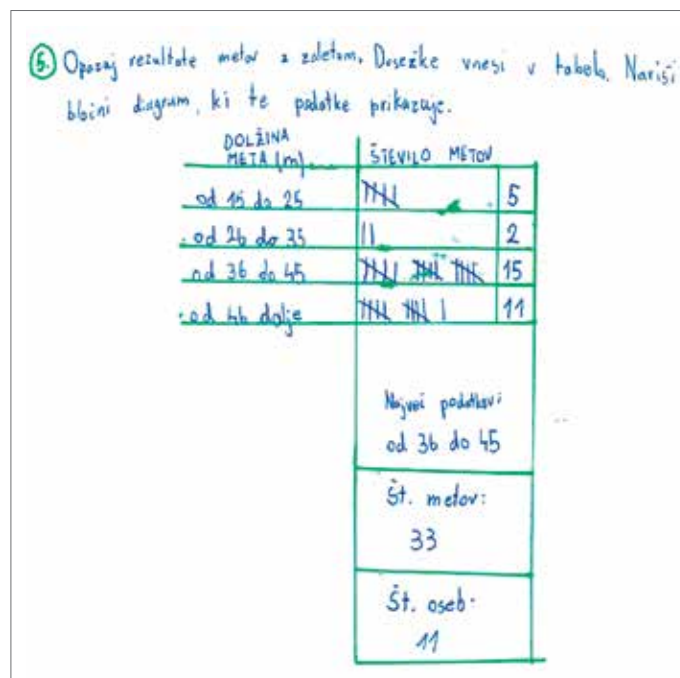 5. Opazuj rezultate metov z zaletom. Dosežke vnesi v tabelo. Nariši
bločni diagram, ki te podatke prikazuje.
DOLŽINA
META (m) ŠTEVILO METOV
od 15 do 25 5
od 26 do 35 2
od 36 do 45 15
od 46 dalje 11
Največ podatkov:
od 36 do 45
Št. metov:
33
Št. oseb:
11